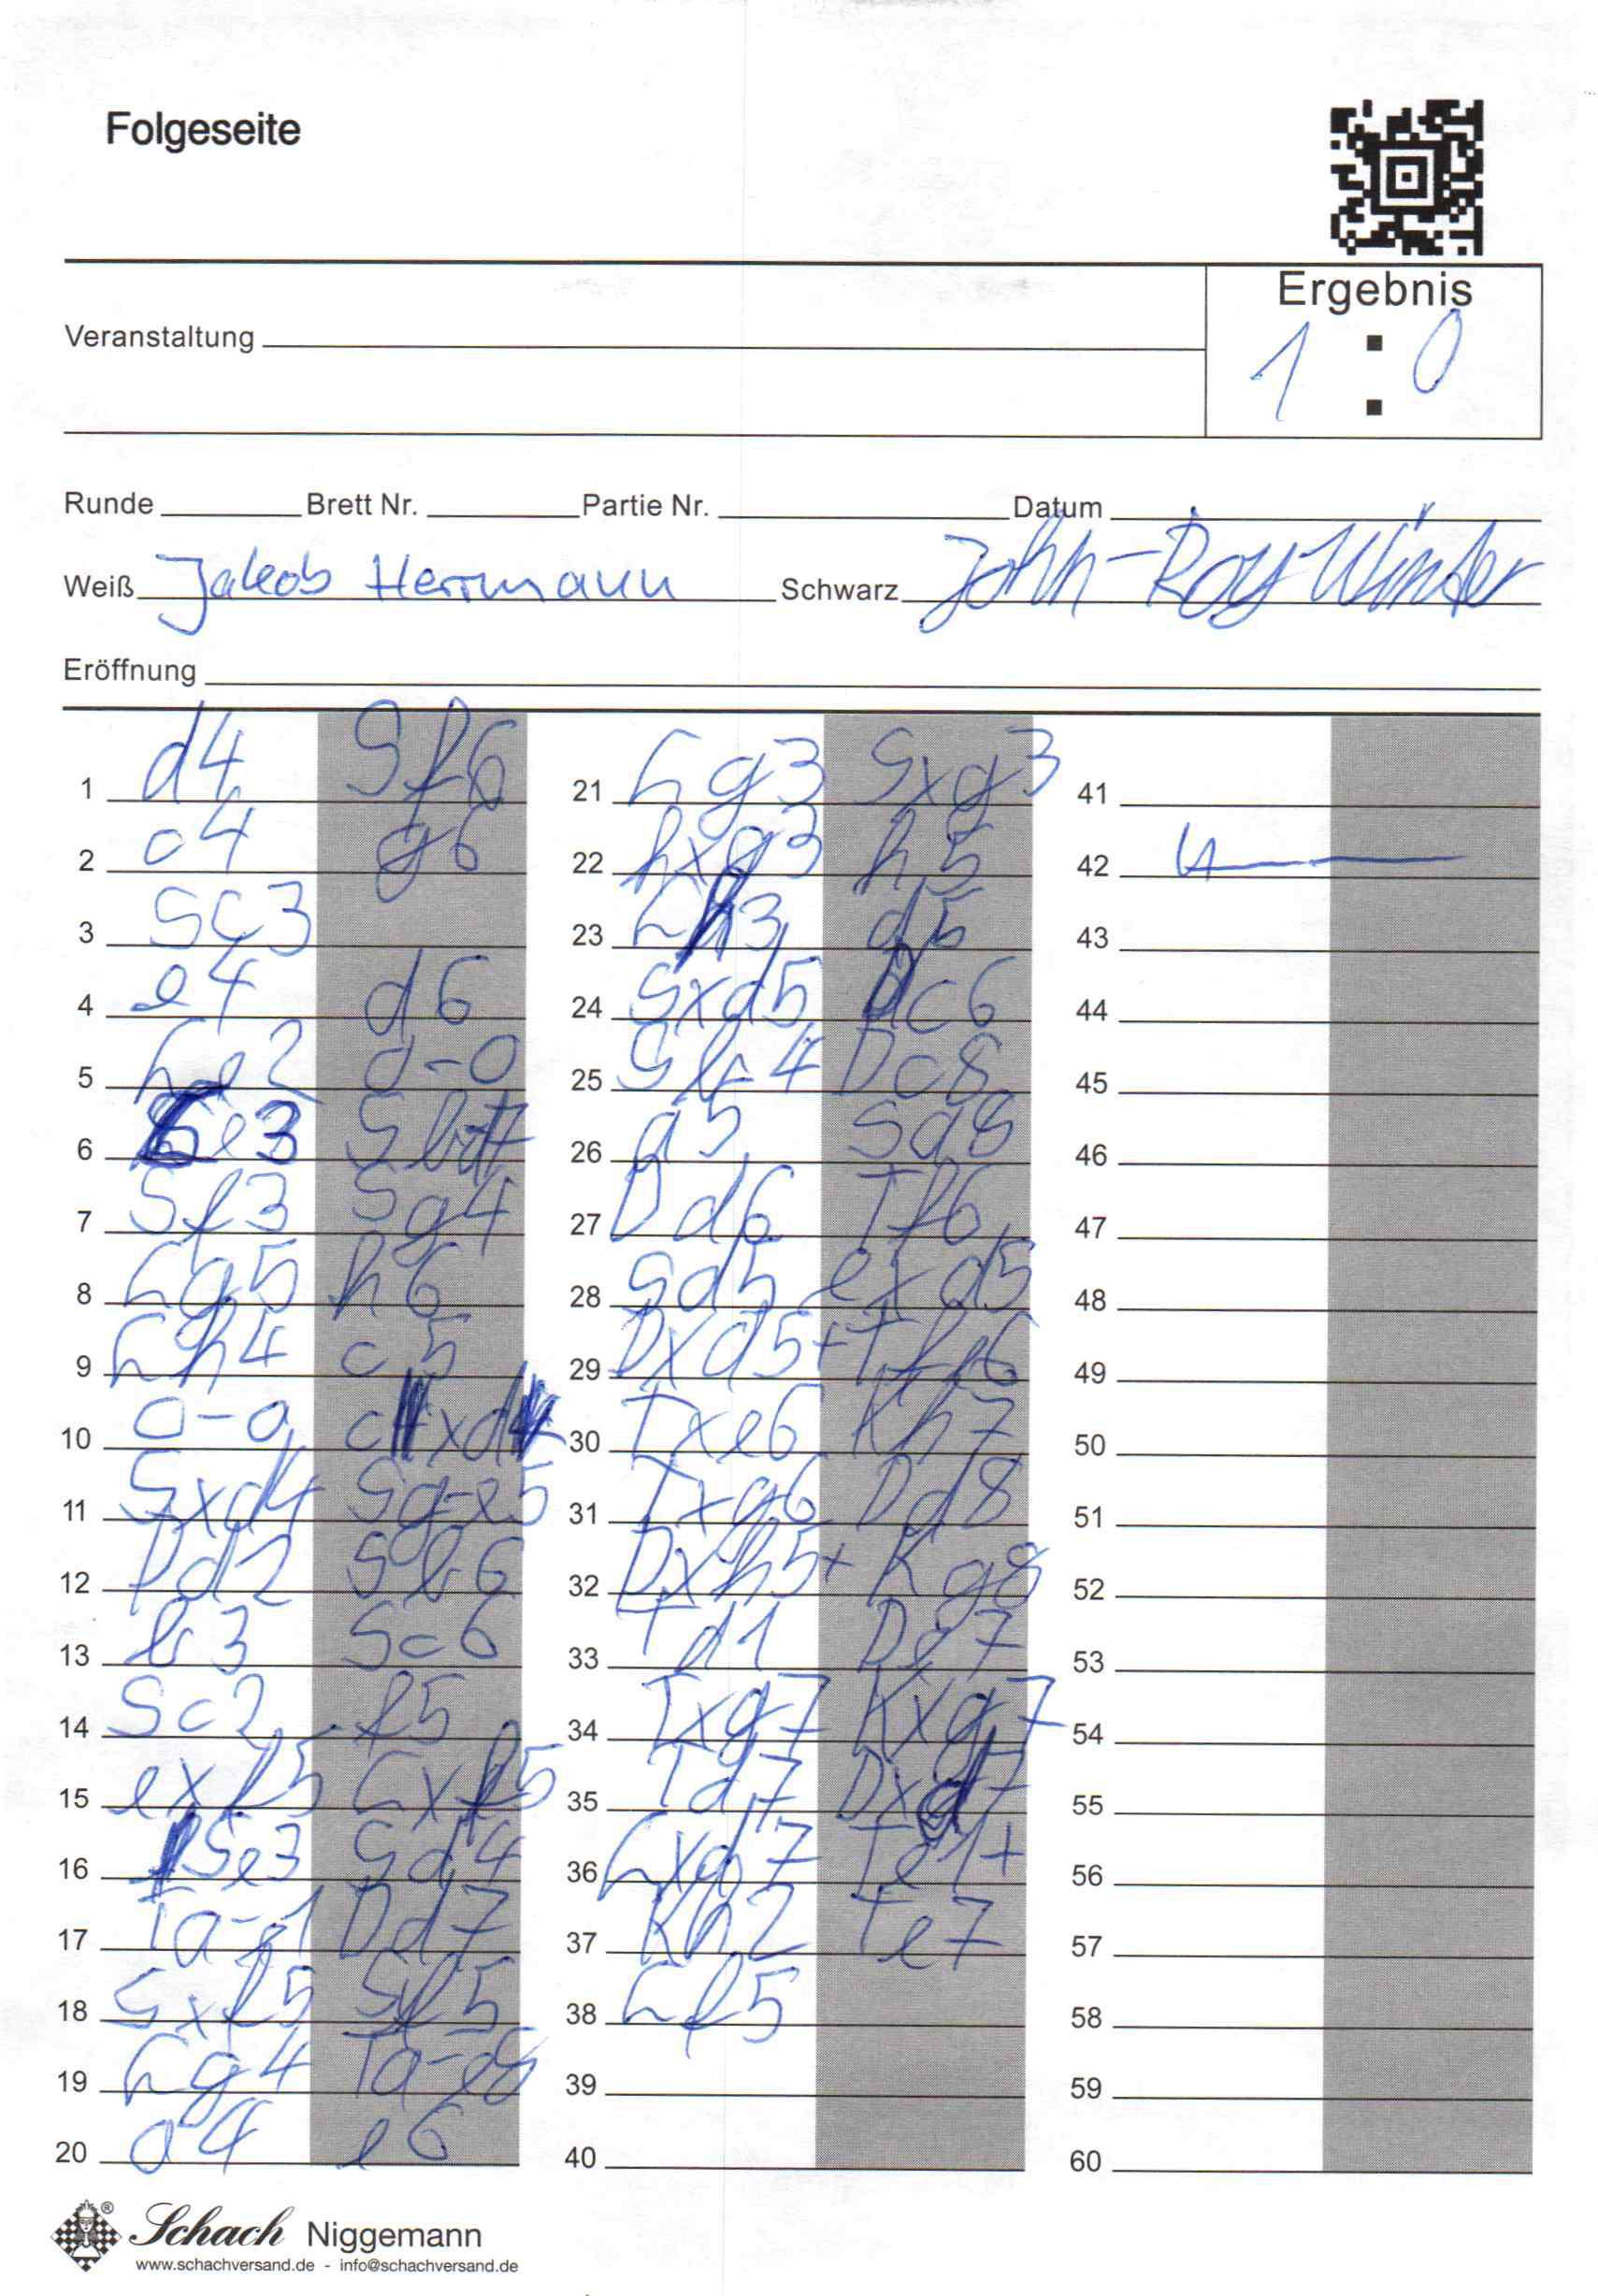 Folgeseite
Ergebnis
1 : 0
Veranstaltung
Runde Brett Nr. Partie Nr. Datum
Weiß Jakob Herrmann Schwarz John-Roy Winter
Eröffnung
1 d4 Sf6
2 c4 g6
3 Sc3
4 e4 d6
5 Le2 0-0
6 Le3 Sbd7
7 Sf3 Sg4
8 Lg5 h6
9 Lh4 c5
10 0-0 cxd4
11 Sxd4 Sg-e5
12 Dd2 Sb6
13 b3 Sc6
14 Sc2 f5
15 exf5 Lxf5
16 Se3 Sd4
17 Ta-e1 Dd7
18 Sxf5 Sxf5
19 Lg4 Ta-e8
20 a4 e6
21 Lg3 Sxg3
22 hxg3 h5
23 Lh3 d5
24 Sxd5 Dc6
25 Sb4 Dc8
26 a5 Sa8
27 Dd6 Tf6
28 Sd5 exd5
29 Dxd5+ Tfe6
30 Txe6 Kh7
31 Txg6 Dd8
32 Dxh5+ Kg8
33 Td1 De7
34 Txg7 Kxg7
35 Td7 Dxd7
36 Lxd7 Te1+
37 Kh2 Te7
38 Lf5
39
40
41
42
43
44
45
46
47
48
49
50
51
52
53
54
55
56
57
58
59
60
® Schach Niggemann
www.schachversand.de - info@schachversand.de